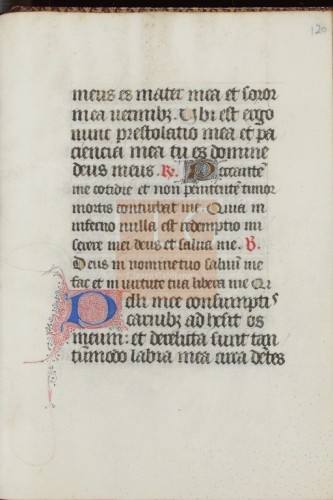 120
meus es mater mea et soror
mea vermibz. Ubi est ergo
nunc prestolatio mea et pa
ciencia mea tu es domine
deus meus. R. Peccante
me cotidie et non penitente timor
mortis conturbat me. Quia in
inferno nulla est redemptio mi
serere mei deus et salva me. V.
Deus in nomine tuo salvu me
fac et in virtute tua libera me Qr
Pelli mee consumptis
carnibz adhesit os
meum: et derelicta sunt tan
tumodo labia mea circa detes